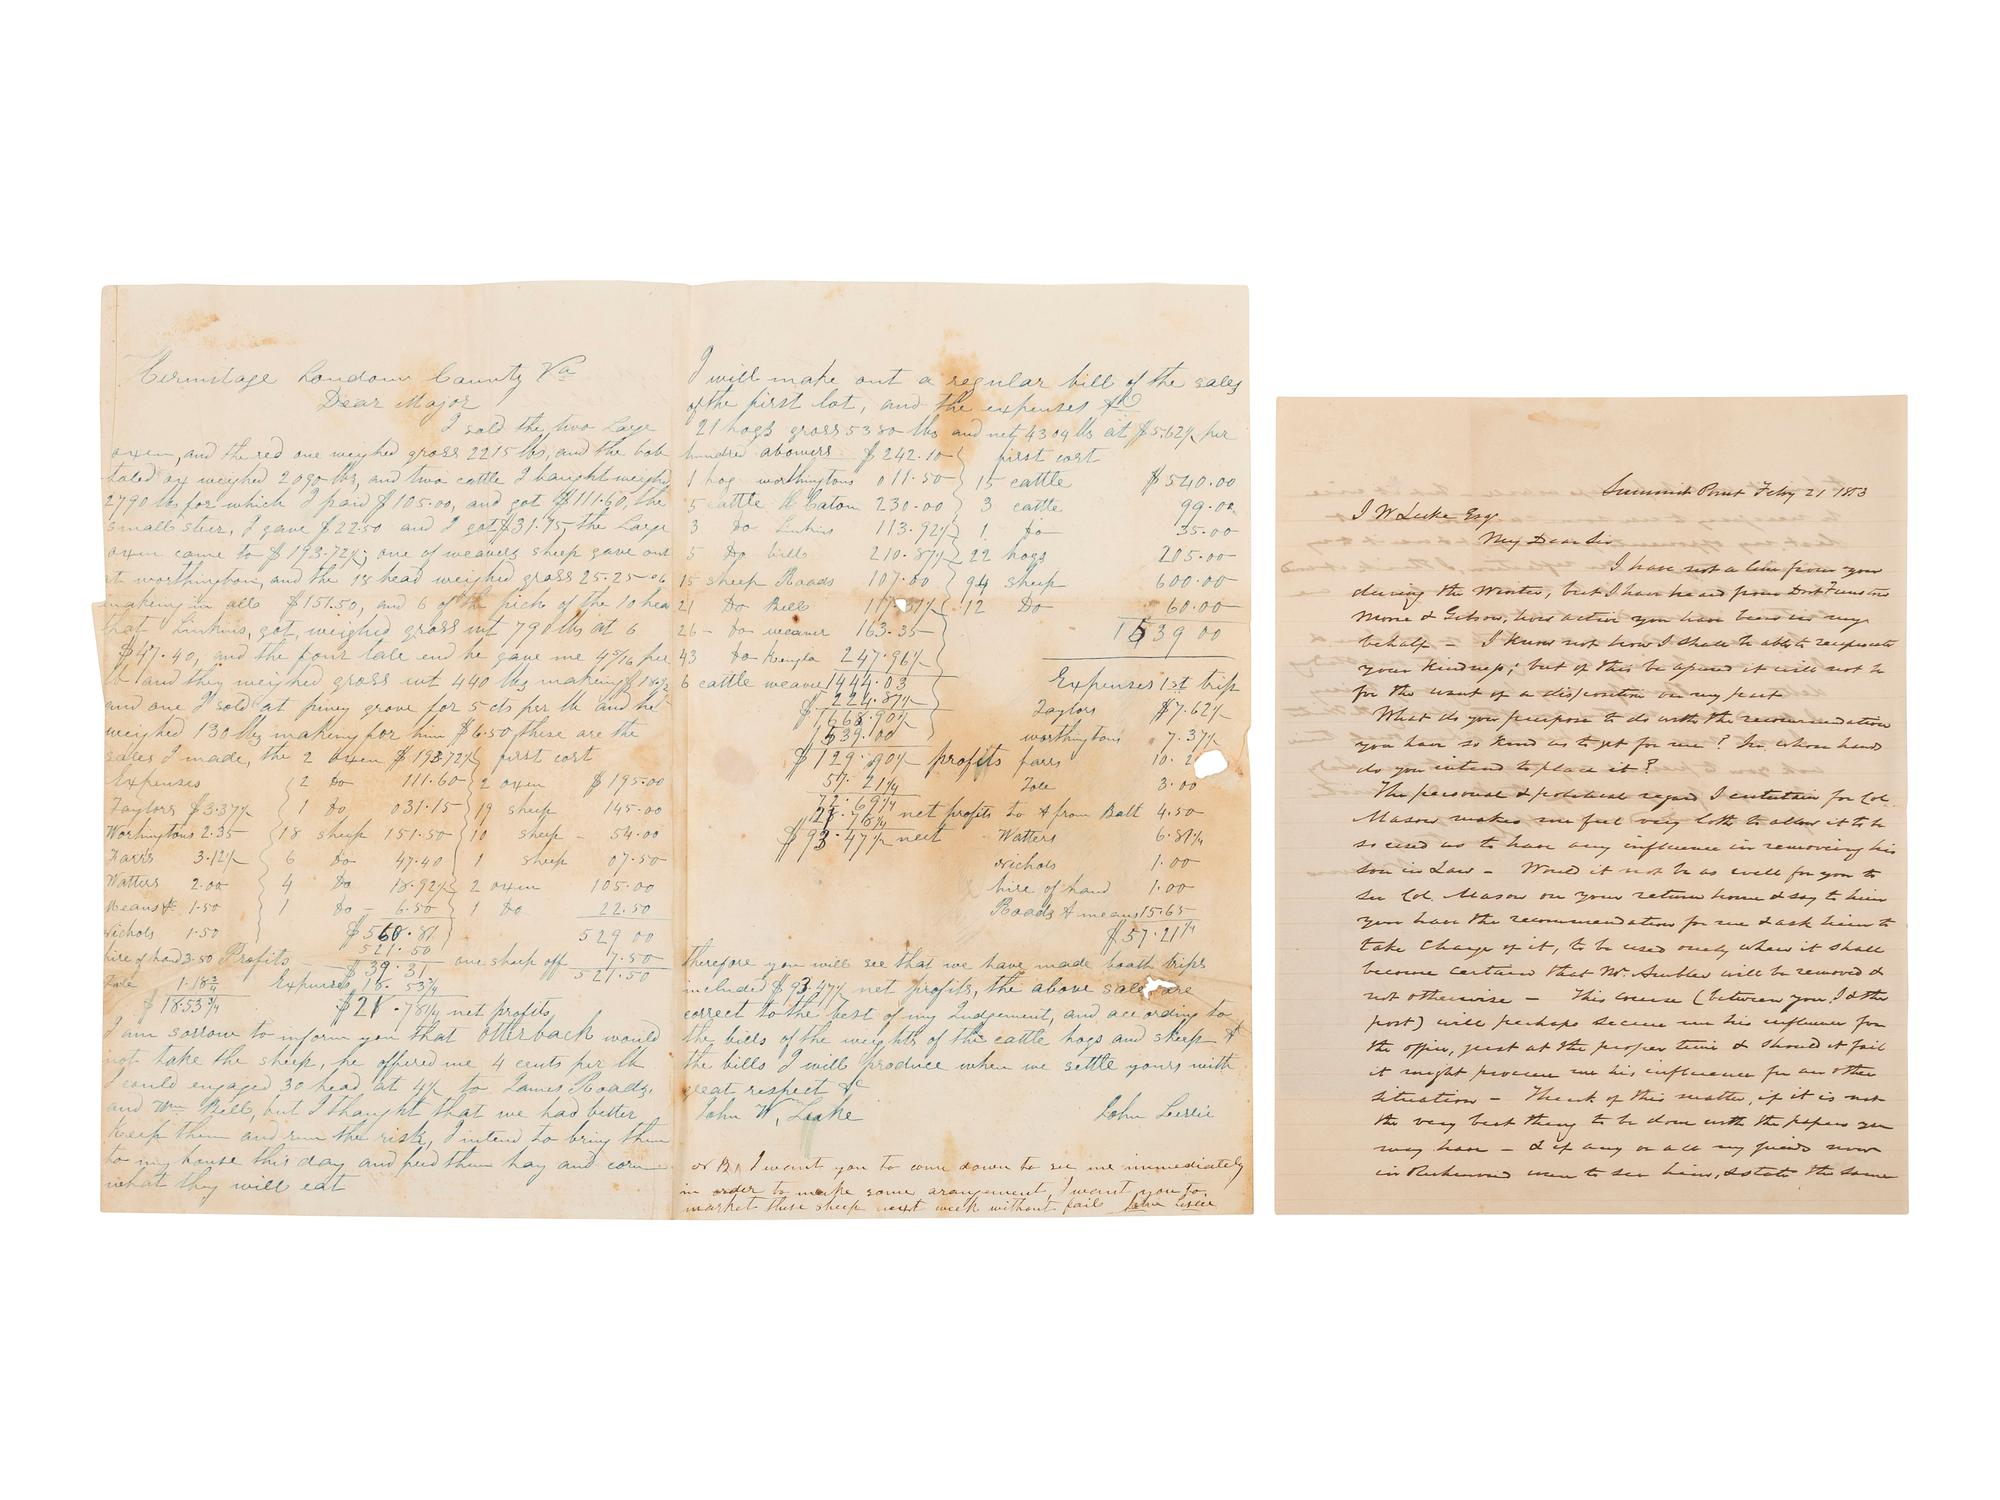 Hermitage Loudoun County Va
Dear Major
I sold the two large
oxen, and the red one weighed gross 2215 lbs, and the bob
taled ox weighed 2090 lbs, and two cattle I baught weighd
2790 lbs for which I paid $105.00, and got $111.60, the
small steer, I gave $22.50 and I got $31.75, the large
oxen came to $193.72½; one of weavers sheep gave out
at worthington, and the 18 head weighed gross 25.25
making in all $151.50, and 6 of the pick of the 10 head
that Linkins, got, weighed gross wt 790 lbs at 6
$47.40, and the four tale end he gave me 4 5/16 per
lb and they weighed gross wt 440 lbs making $18.92
and one I sold at piney grove for 5 cts per lb and he
weighed 130 lbs making for him $6.50, these are the
sales I made, the 2 oxen $193.72½ first cost
Expenses 2 Do 111.60 2 oxen $195.00
Taylors $3.37½ 1 Do 031.15 19 sheep 145.00
Worthingtons 2.35 18 sheep 151.50 10 sheep - 54.00
Farrs 3.12½ 6 Do 47.40 1 sheep 07.50
Watters 2.00 4 Do 18.92½ 2 oxen 105.00
Means &c 1.50 1 Do - 6.50 1 Do 22.50
Nichols 1.50 $560.81 529 00
hire of hand 3.50 Profits 521.50 one sheep off 7.50
$39.31 521.50
Tole 1.18¾ Expenses 18.53¾
$18.53¾ $21.78¼ net profits
I am sorrow to inform you that Otterback would
not take the sheep, he offered me 4 cents per lb
I could engaged 30 head at 4½ to James Roads,
and Wm Bell, but I thaught that we had better
keep them and run the risk, I intend to bring them
to my house this day and feed them hay and corn
what they will eat
I will make out a regular bill of the sales
of the first lot, and the expenses &c
21 hogs gross 5380 lbs and net 4304 lbs at $5.62½ per
hundred abowers $242.10 first cost
1 hog worthingtons 011.50 15 cattle $540.00
5 cattle H Eaton 230.00 3 cattle 99.00
3 Do Linkins 113.92½ 1 Do 35.00
5 Do bill 210.87½ 22 hogs 205.00
15 sheep Roads 107.00 94 sheep 600.00
21 Do Bells 117.37½ 12 Do 60.00
26 - Do weaver 163.35 1539 00
43 Do Kengla 247.96½
6 cattle weaver 1444.03 Expenses 1st trip
$ 224.87½ Taylors $7.62½
1,668.90½ worthingtons 7.37½
1539.00
$129.90½ profits farrs 10.2
57.21¼ Tole 3.00
72.69¼ net profits to & from Balt 4.50
21.78¼
$93.47½ neet Watters 6.81¼
Nichols 1.00
hire of hand 1.00
Roads & means 15.65
$57.21¼
therefore you will see that we have made boath trips
included $93.47½ net profits, the above sales are
correct to the best of my Judgement, and according to
the bills of the weights of the cattle hogs and sheep &
the bills I will produce when we settle yours with
great respect &c
John W, Leake John Leslie
I want you to come down to see me immediately
in order to make some arangement, I want you to
market these sheep next week without fail John Leslie
Summit Point Feby 21 1853
J W Luke Esqr
My Dear Sir
I have not a line from you
during the Winter, but I have heard from Doct Funsten
Moore & Gibson, how active you have been in my
behalf - I know not how I shall be able to reciprocate
your kindness; but of this be assured it will not be
for the want of a disposition on my part
What do you purpose to do with the recommendation
you have so kind as to get for me? In whose hands
do you intend to place it?
The personal & political regard I entertain for Col.
Mason makes me feel very loth to allow it to be
so used as to have any influence in removing his
son in Law - Would it not be as well for you to
see Col. Mason on your return home & say to him
you have the recommendation for me & ask him to
take charge of it, to be used only when it shall
become certain that Mr. Ambler will be removed &
not otherwise - This course (between you I & the
post) will perhaps secure me his influence for
the office, just at the proper time & should it fail
it might procure me his influence for another
situation - Think of this matter, if it is not
the very best thing to be done with the papers you
may have - & if any or all my friends now
in Richmond were to see him, & state the same